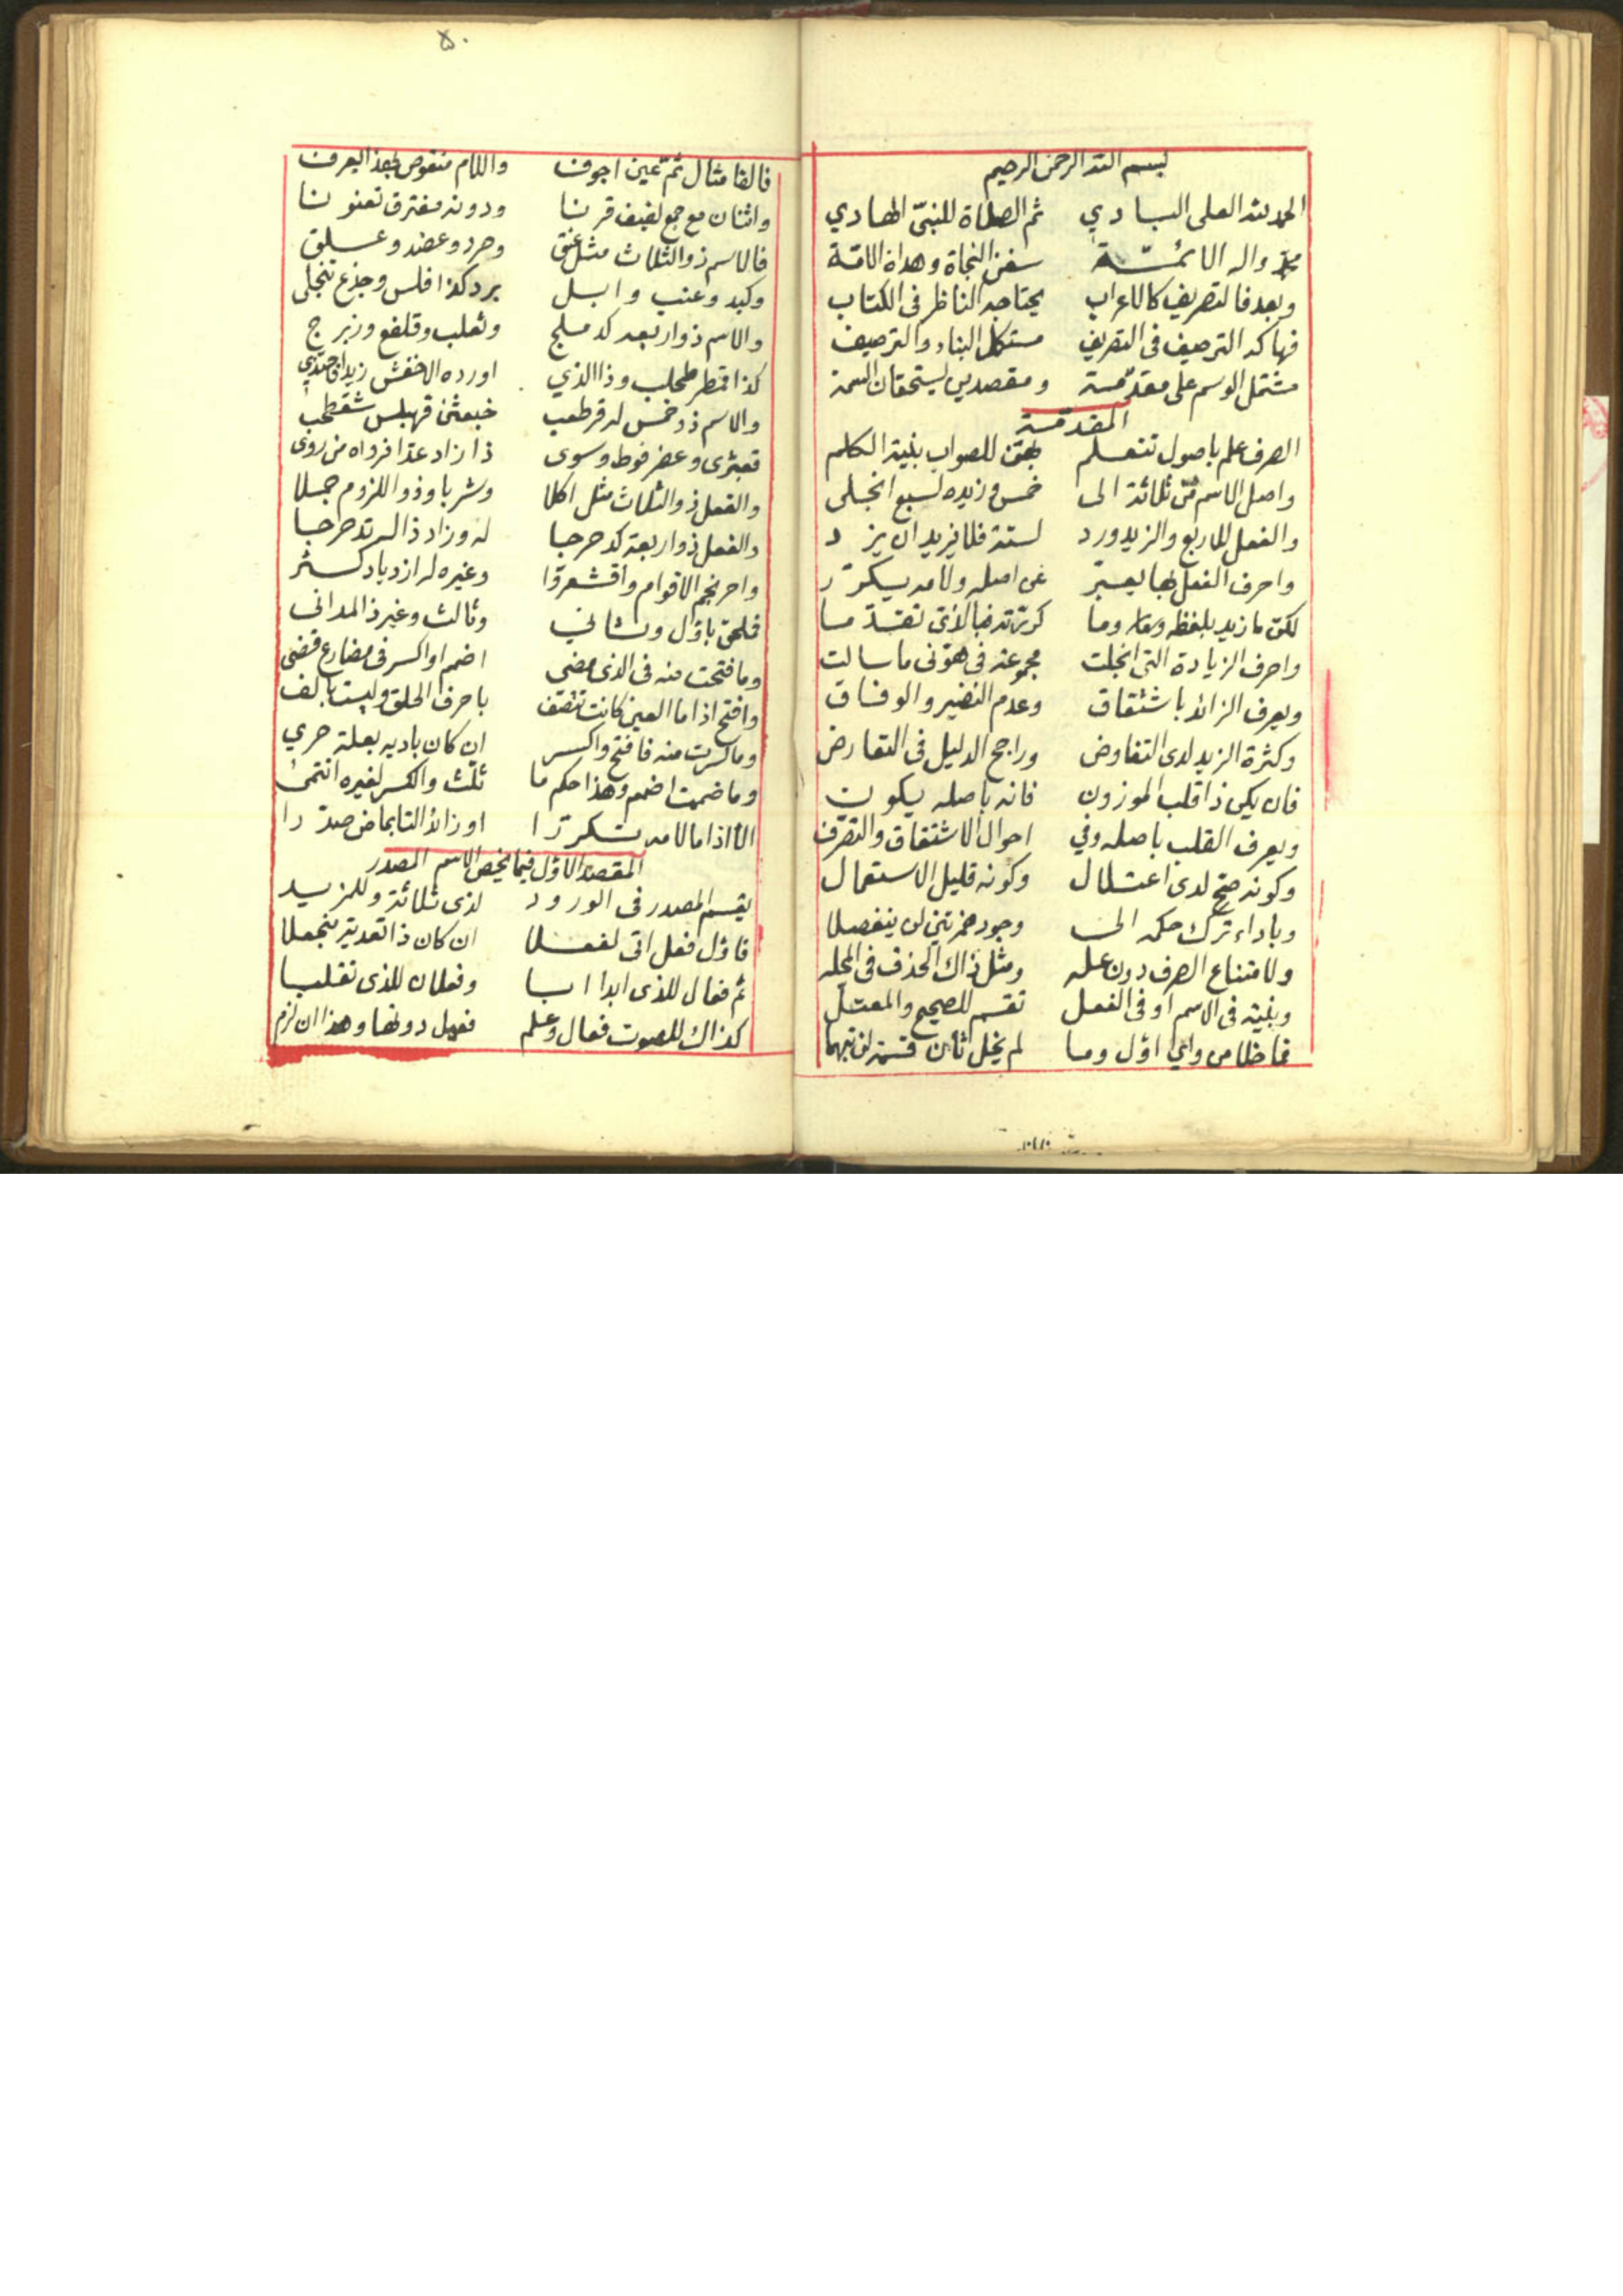 بسم الله الرحمن الرحيم
الحمد لله العلى البادي ثم الصلاة للنبيّ الهادي
محمد واله الائمّة سفن النجاة وهداة الامّة
وبعد فالتصريف كالاعراب يحتاجه الناظر في الكتاب
فهاكه الترصيف في التصريف مستكمل البناء والترصيف
مشتمل الوسم على مقدّمة ومقصدين يستحقان السمة
المقدّمة
الصرف علم باصول تنعلم بهنّ للصواب بنية الكلم
واصل الاسم من ثلاثة الى خمس وزيده لسبع انجلى
والفعل للاربع والزيد ورد لستة فلا يزيد ان يزد
واحرف الفعل بها يعبّر عن اصله ولامه يكرّر
لكنّ ما زيد بلفظه وما كررته فبالذى تقدّما
واحرف الزيادة التى انجلت مجموعة في هوّنى ما سالت
ويعرف الزائد باشتقاق وعدم النضير والوفاق
وكثرة الزيد لدى التفاوض وراجح الدليل في التعارض
فان يكن ذا قلب الموزون فانه باصله يكون
ويعرف القلب باصله وفي احوال الاشتقاق والتصرّف
وكونه صحّ لدى اعتلال وكونه قليل الاستعمال
وباداء ترك حكمه الى وجود همزتين لن ينفصلا
ولامتناع الصرف دون عله ومثل ذاك الحذف في المحله
وبنية في الاسم او في الفعل تقسم للصحيح والمعتلّ
فما خلا من واي اوّل وما لم يخل ثان قسمة
فالفا مثال ثمّ عين اجوف واللام منقوص بهذا يعرف
واثنان مع جمع لفيف قرنا ودونه مفترق
فالاسم ذو الثلاث مثل عنق وصرد وعضد وعلق
وكبد وعنب وابل برد كذا فلس وجذع تنجلى
والاسم ذو اربعة كدملج وثعلب وقلفع وزبرج
كذا قمطر طحلب وذا الذي اورده الاخفش زيدا
والاسم ذو خمس له قرطعب خبعثن قهبلس شقحطب
قبعثرى وعضرفوط وسوى ذا زاد عدّا فرواه من روى
والفعل ذو الثلاث مثل اكلا وشربا وذو اللزوم جملا
والفعل ذو اربعة كدحرجا له وزاد ذاله تدحرجا
واحرنجم الاقوام واقشعرّا وغيره له ازدياد كسثر
فلحق باوّل وثاني وثالث وغير ذا لمدانى
وما فتحت منه في الذى مضى اضمم او اكسر في مضارع قضى
وافتح اذا ما العين كانت تتصف باحرف الحلق وليست بالف
وما كسرت منه فافتح واكسر ان كان باديه بعلة حري
وما ضممت اضمم وهذا حكم ما ثلّث والكسر لغيره انتمى
الّا اذا ما لامه تكرّرا او زائد التا بماض صدّرا
المقصد الاوّل فيما يخص الاسم المصدر
يقسم المصدر في الورود لذى ثلاثة وللمزيد
فاوّل فعل اتى لفعلا ان كان ذا تعدية
ثم فعال للذى ابدا ابا وفعلان للذى تقلبا
كذاك للصوت فعال وعلم فعيل دونها وهذا ان لزم